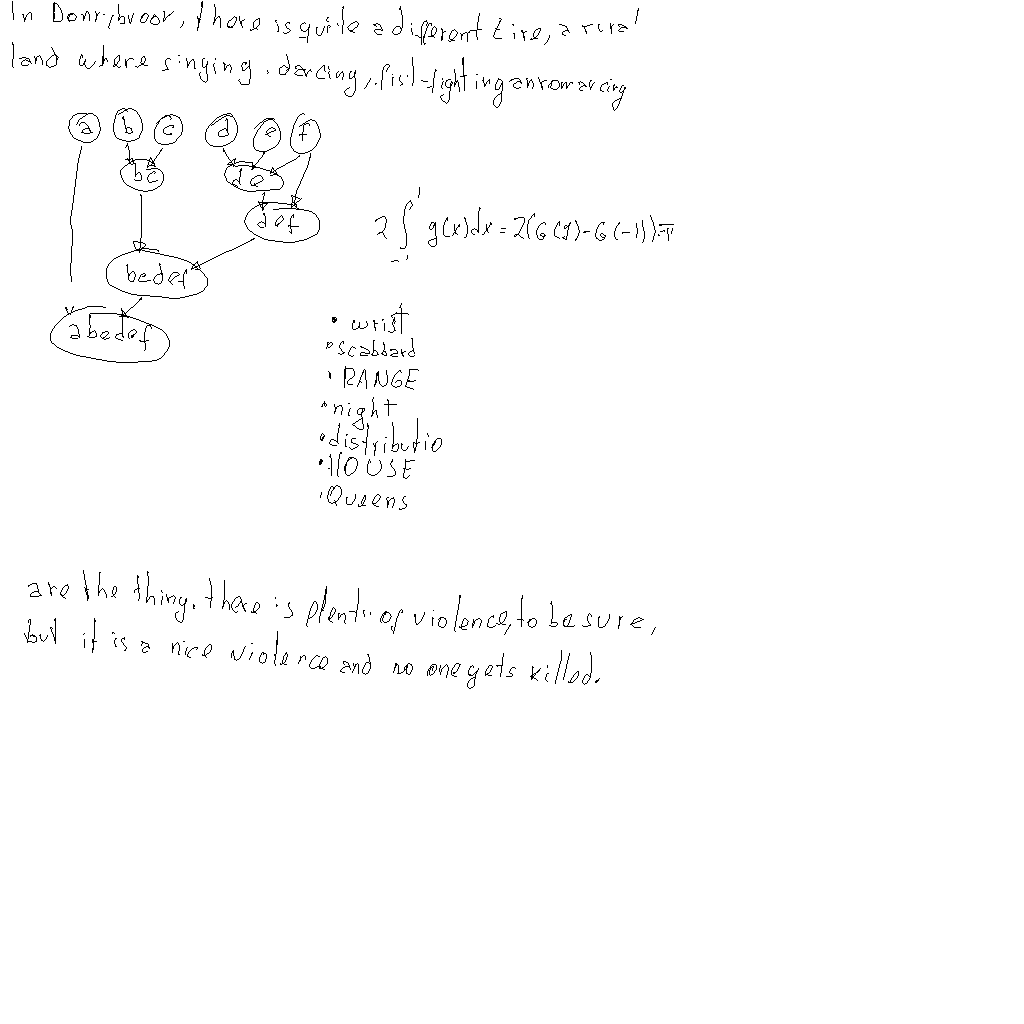 In Donnybroor, there is quite a different Eire, a rural
land where singing, dancing, fist-fighting an romancing
a b c d e f
bc de
def
2 ∫_{-1}^{1} g(x)dx = 2(G(1)-G(-1))=π
bcdef
abcdef
• wrist
• scabbard
• RANGE
• night
• distributio
• HOUSE
• Queens
are the thing. there is plenty of violence, to be sure,
but it is a nice violence and no one gets killed.